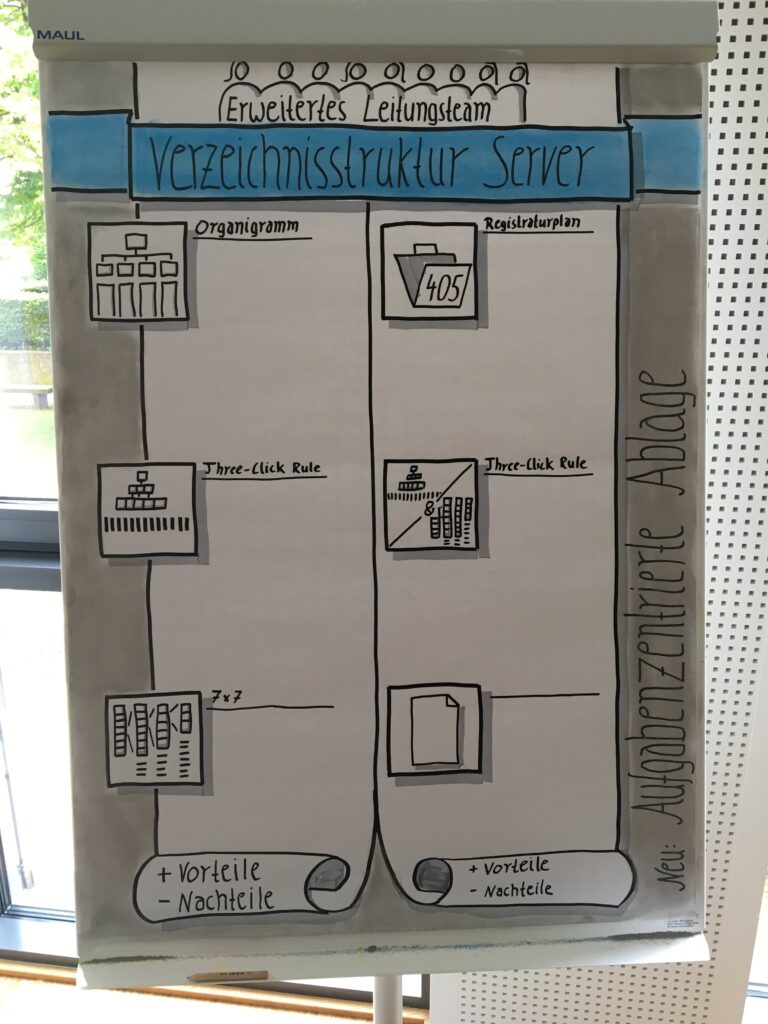 MAUL
Erweitertes Leitungsteam
Verzeichnisstruktur Server
Organigramm
Registraturplan
405
Three-Click Rule
Three-Click Rule
&
7x7
+ Vorteile
- Nachteile
+ Vorteile
- Nachteile
Neu: Aufgabenzentrierte Ablage